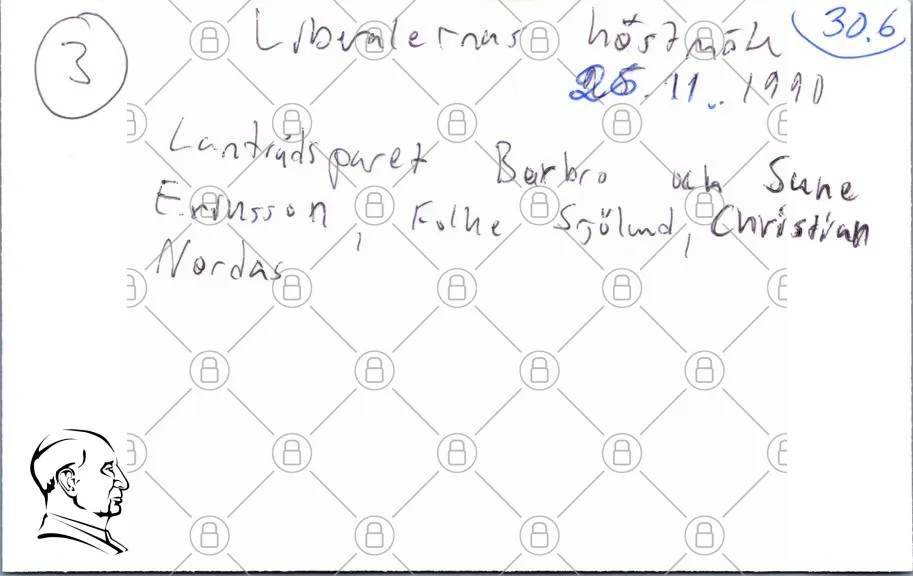 3
Liberalernas höstmöte
30.6
25.11.1990
Lantrådsparet Barbro och Sune
Eriksson, Folke Sjölund, Christian
Nordas